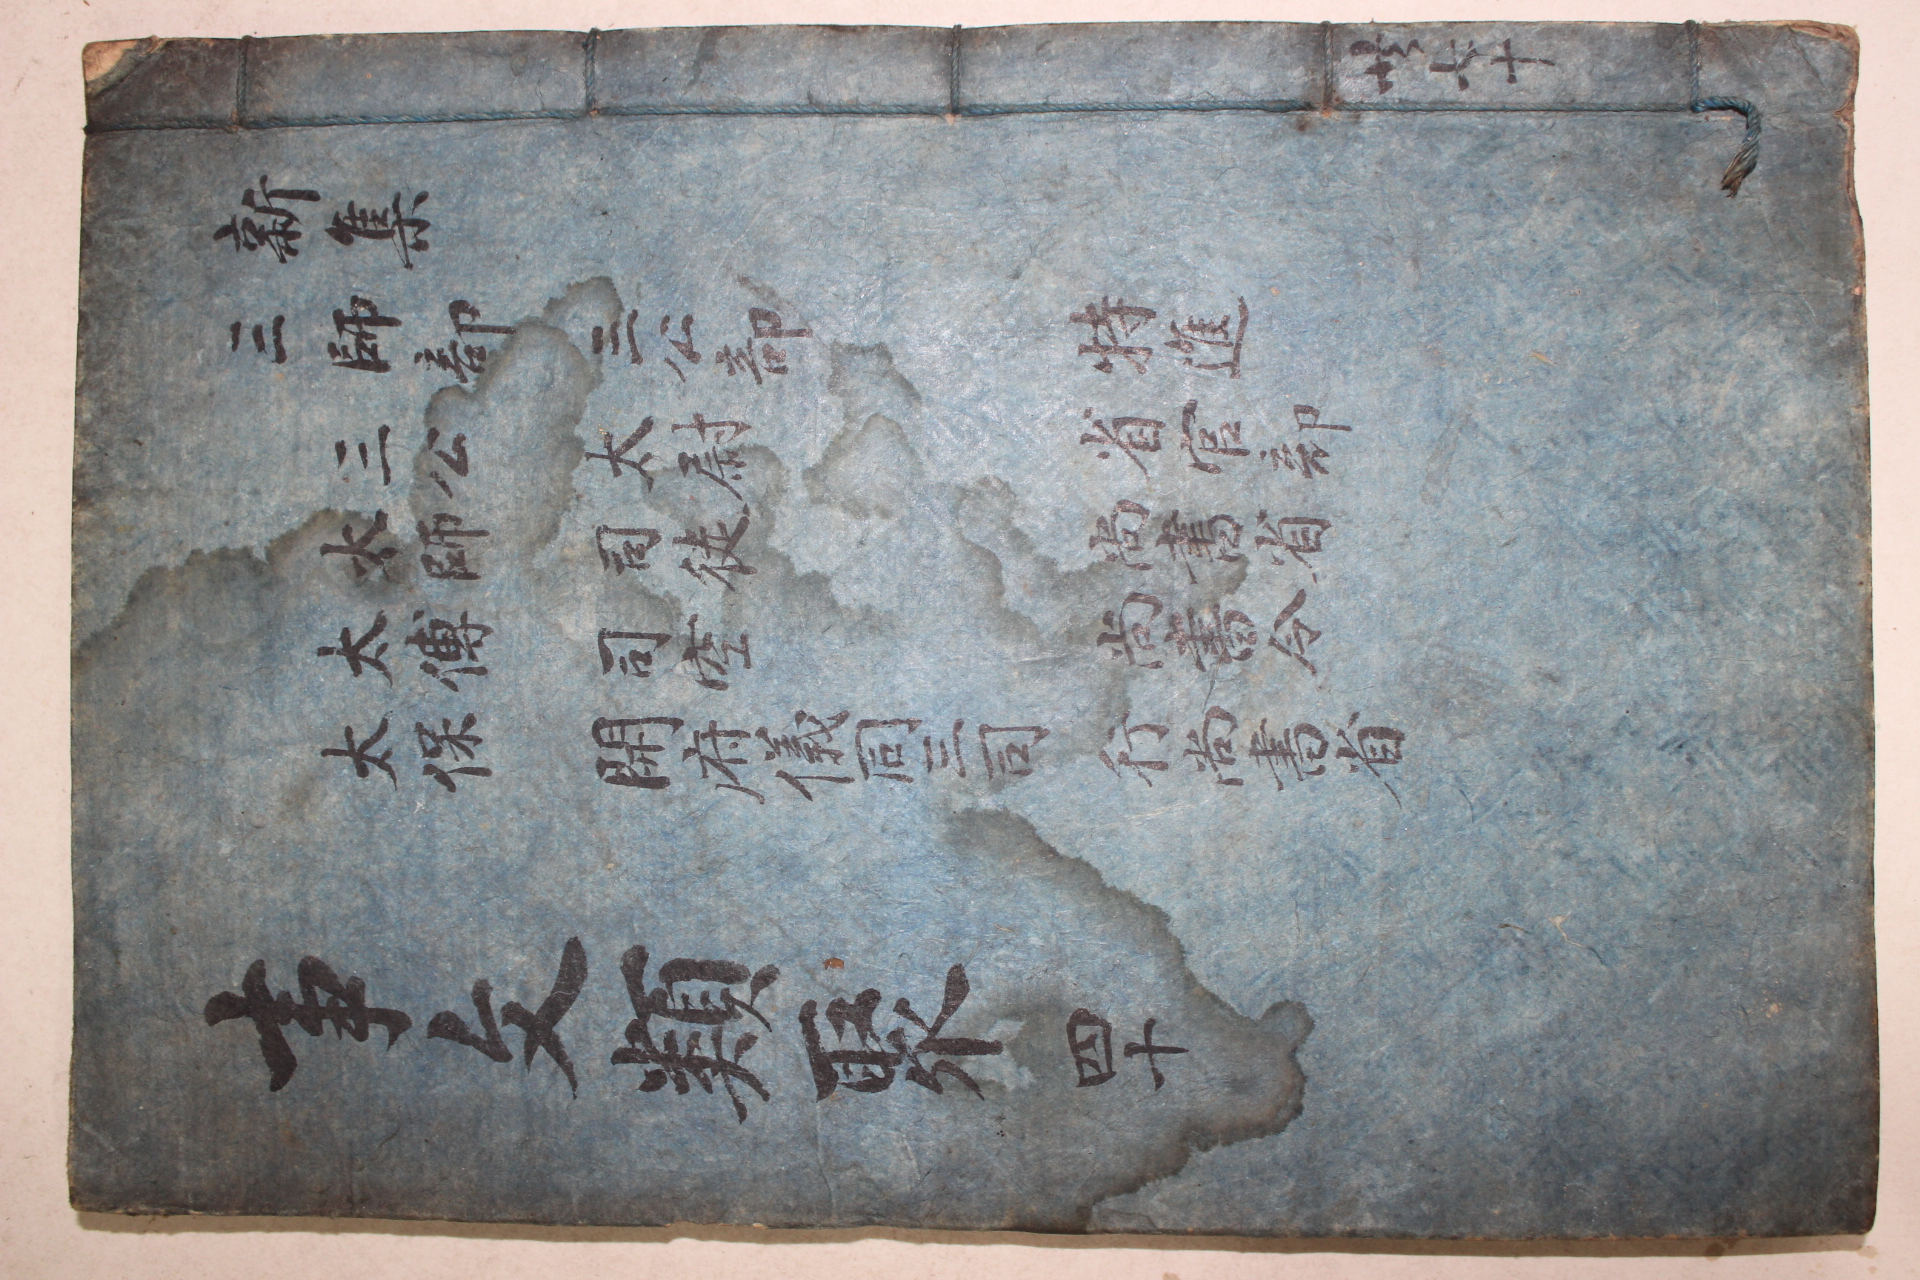 共七十
新集
三師部 三公部 特進
三公 太尉 省官部
太師 司徒 尚書省
太傅 司空 尚書令
太保 開府儀同三司 行尚書省
事文類聚 四十